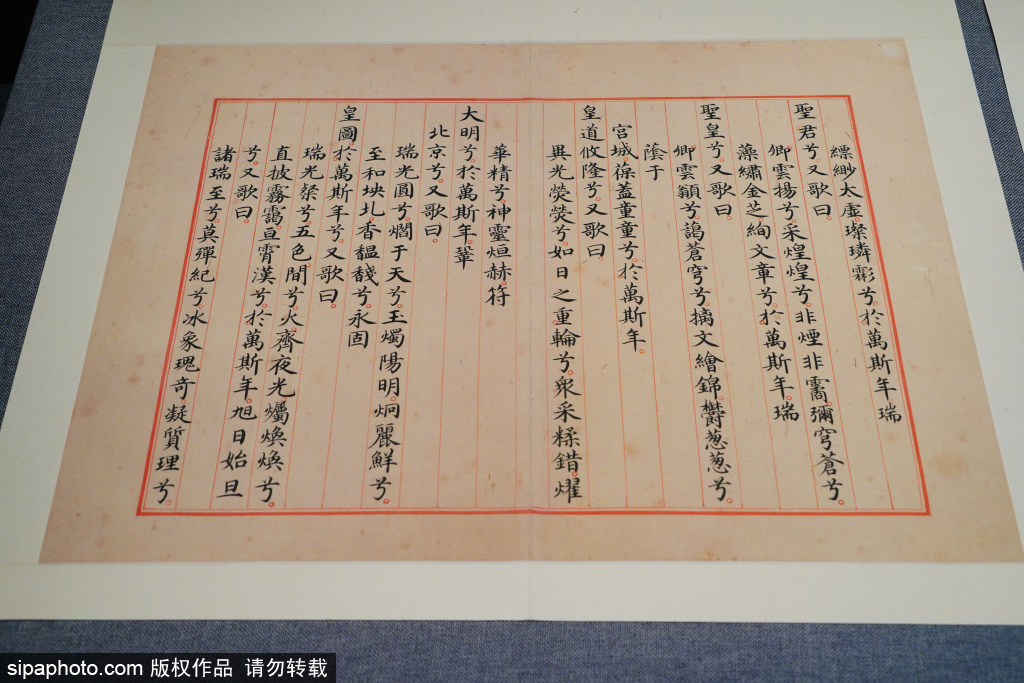 縹緲太虛璨璘霦兮於萬斯年瑞
聖君兮又歌曰
卿雲揚兮采煌煌兮非煙非霱彌穹蒼兮
藻繡金芝絢文章兮於萬斯年瑞
聖皇兮又歌曰
卿雲顓兮藹蒼穹兮摛文繪錦欝葱葱兮
蔭于
宮城葆蓋童童兮於萬斯年
皇道攸隆兮又歌曰
異光熒熒兮如日之重輪兮衆采糅錯燿
華精兮神靈烜赫符
大明兮於萬斯年鞏
北京兮又歌曰
瑞光圓兮燗于天兮玉燭陽明炯麗鮮兮
至和坱圠香馧馢兮永固
皇圖於萬斯年兮又歌曰
瑞光粲兮五色間兮火齊夜光爥煥煥兮
直披霧靄亘霄漢兮於萬斯年旭日始旦
兮又歌曰
諸瑞至兮莫殫紀兮冰象瑰奇凝質理兮
sipaphoto.com 版权作品 请勿转载